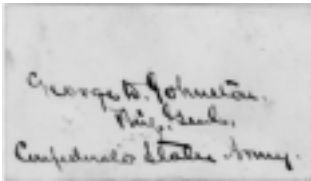 George D. Johnston.
Brig. Genl.
Confederate States Army.